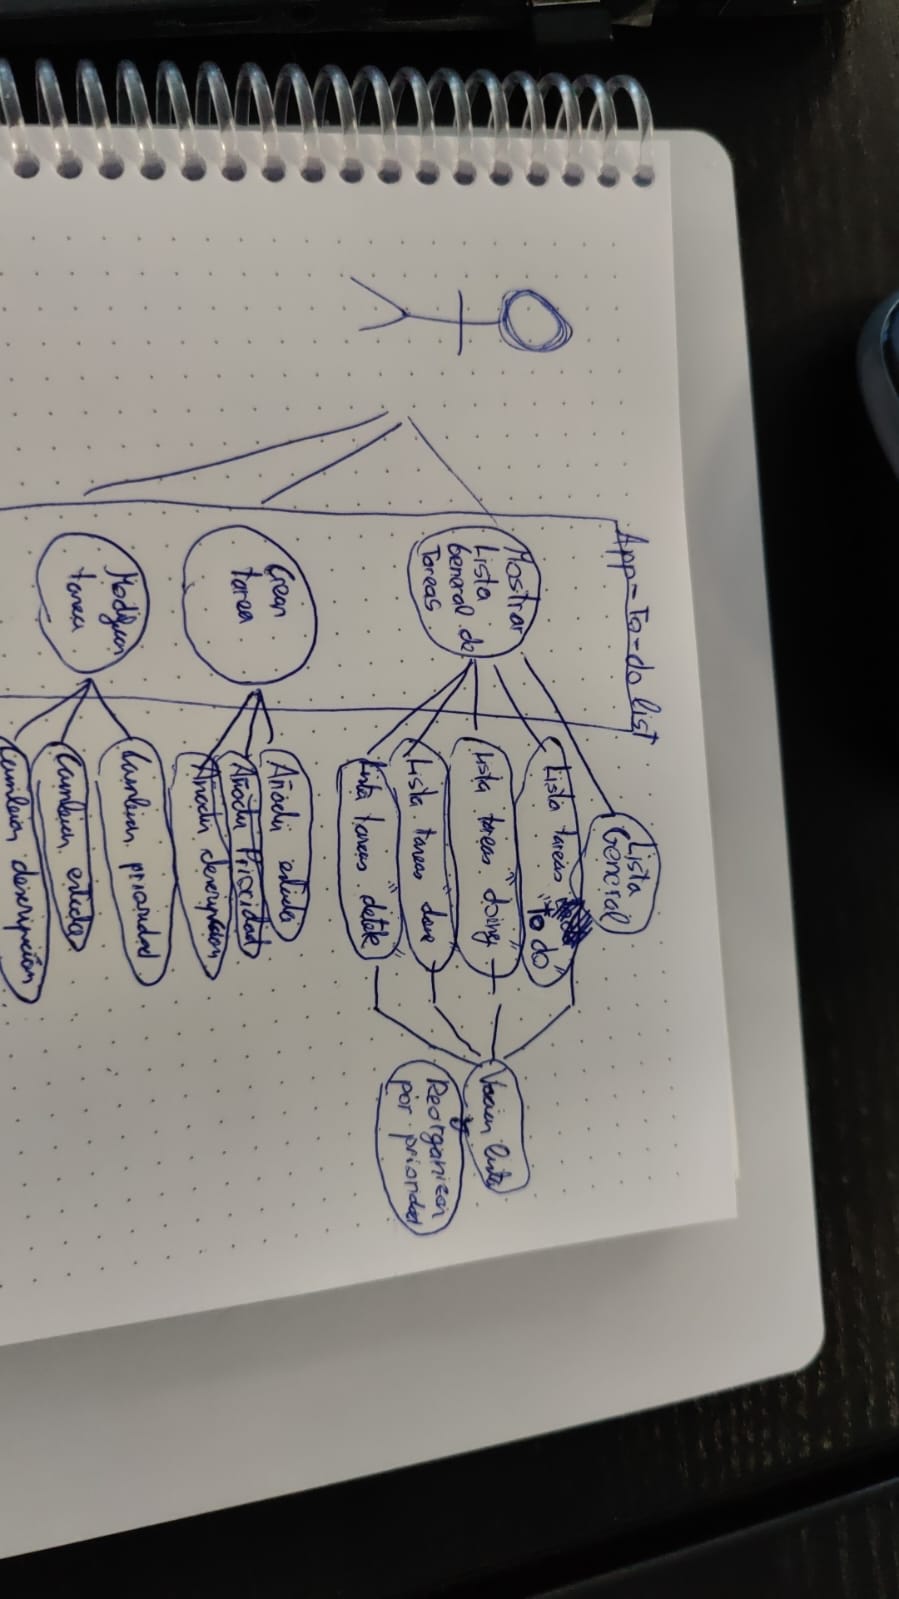 App-To-do list
Mostrar
Lista
General de
Tareas
Lista
General
Lista tareas "To do"
Lista tareas "doing"
Lista tareas "done"
Lista tareas "delete"
Vaciar lista
y
Reorganizar
por prioridad
Crear
tarea
Añadir estado
Añadir Prioridad
Añadir descripción
Modificar
tarea
Cambiar prioridad
Cambiar estado
Cambiar descripción